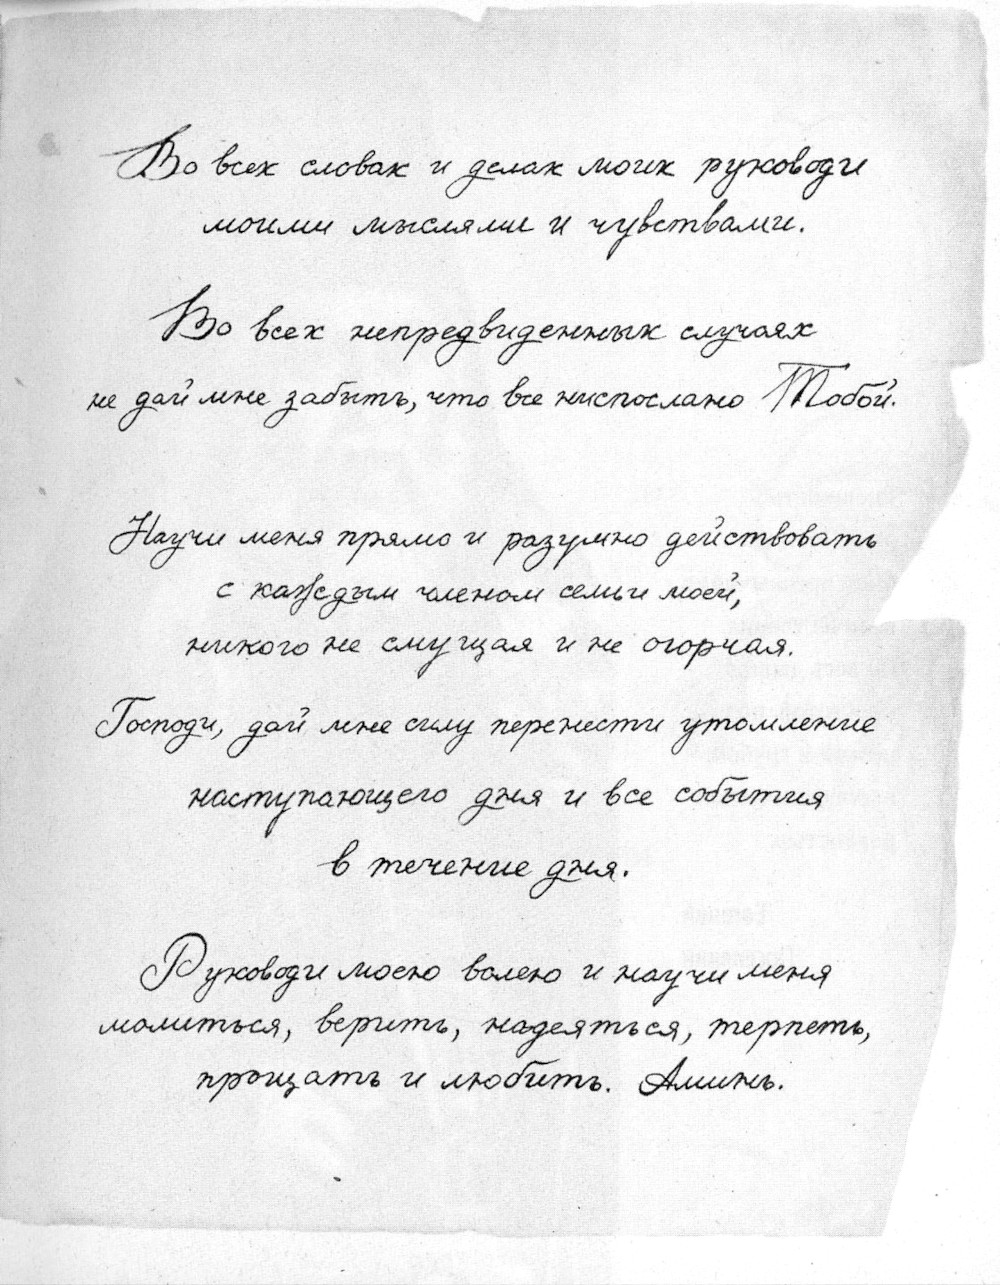 Во всех словах и делах моих руководи
моими мыслями и чувствами.
Во всех непредвиденных случаях
не дай мне забыть, что все ниспослано Тобой.
Научи меня прямо и разумно действовать
с каждым членом семьи моей,
никого не смущая и не огорчая.
Господи, дай мне силу перенести утомление
наступающего дня и все события
в течение дня.
Руководи моею волею и научи меня
молиться, верить, надеяться, терпеть,
прощать и любить. Аминь.